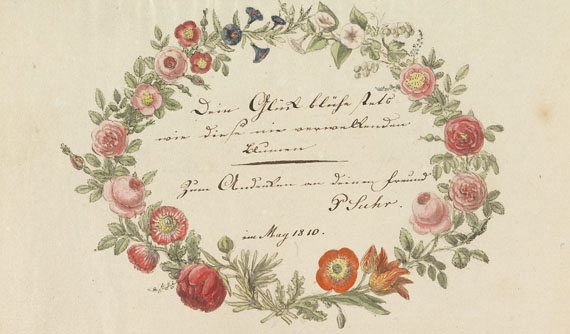 Dein Glück blühe stets
wie diese nie verwelkenden
Blumen
Zum Andenken an deinen Freund
P Suhr.
im May 1810.